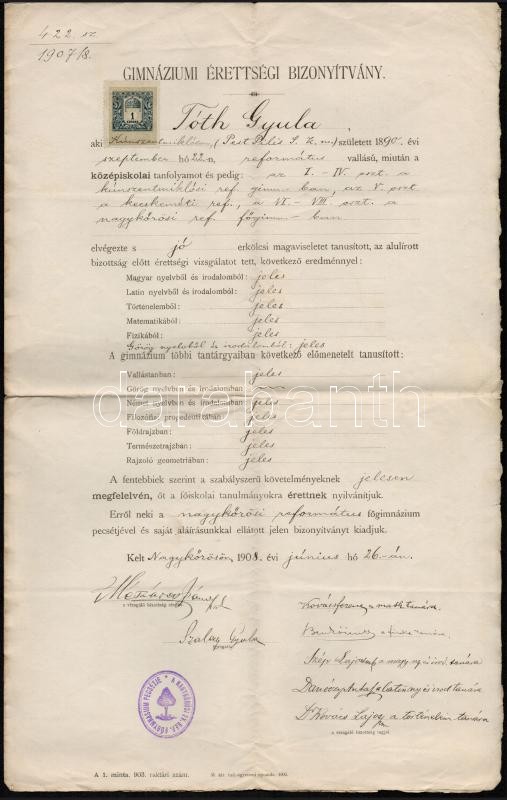 422 sz.
1907/8.
GIMNÁZIUMI ÉRETTSÉGI BIZONYÍTVÁNY.
1
Tóth Gyula,
aki Kúnszentmiklóson, (Pest Pilis S. K. m.) született 1890. évi
szeptember hó 22-n, református vallású, miután a
középiskolai tanfolyamot és pedig: az I.-IV. oszt. a
kúnszentmiklósi ref. gimn.-ban, az V. oszt.
a kecskeméti ref., a VI-VIII. oszt. a
nagykőrösi ref. főgimn.-ban
elvégezte s jó erkölcsi magaviseletet tanusított, az alulírott
bizottság előtt érettségi vizsgálatot tett, következő eredménnyel:
Magyar nyelvből és irodalomból: jeles
Latin nyelvből és irodalomból: jeles
Történelemből: jeles
Matematikából: jeles
Fizikából: jeles
Görög nyelvből és irodalomból: jeles
A gimnázium többi tantárgyaiban következő előmenetelt tanusított:
Vallástanban: jeles
Görög nyelvben és irodalomban:
Német nyelvben és irodalomban: jeles
Filozófiai propedeutikában: jeles
Földrajzban: jeles
Természetrajzban: jeles
Rajzoló geometriában: jeles
darabanth
A fentebbiek szerint a szabályszerű követelményeknek jelesen
megfelelvén, őt a főiskolai tanulmányokra érettnek nyilvánítjuk.
Erről neki a nagykőrösi református főgimnázium
pecsétjével és saját aláírásunkkal ellátott jelen bizonyítványt kiadjuk.
Kelt Nagykőrösön, 1908. évi június hó 26-án.
Mészáros János
a vizsgáló bizottság
Szalay Gyula
igazgató
Kovács Ferenc a math. tanára
a fizika tanára
Szép Lajos a magy. ny. és irod. tanára
a latin ny. és irod. tanára
Dr Kovács Lajos a történelem tanára
a vizsgáló bizottság tagjai.
A NAGYKŐRÖSI EV. REF. FŐGYMNASIUM PECSÉTJE
A 1. minta. 903. raktári szám.
M. kir. tud.-egyetemi nyomda.